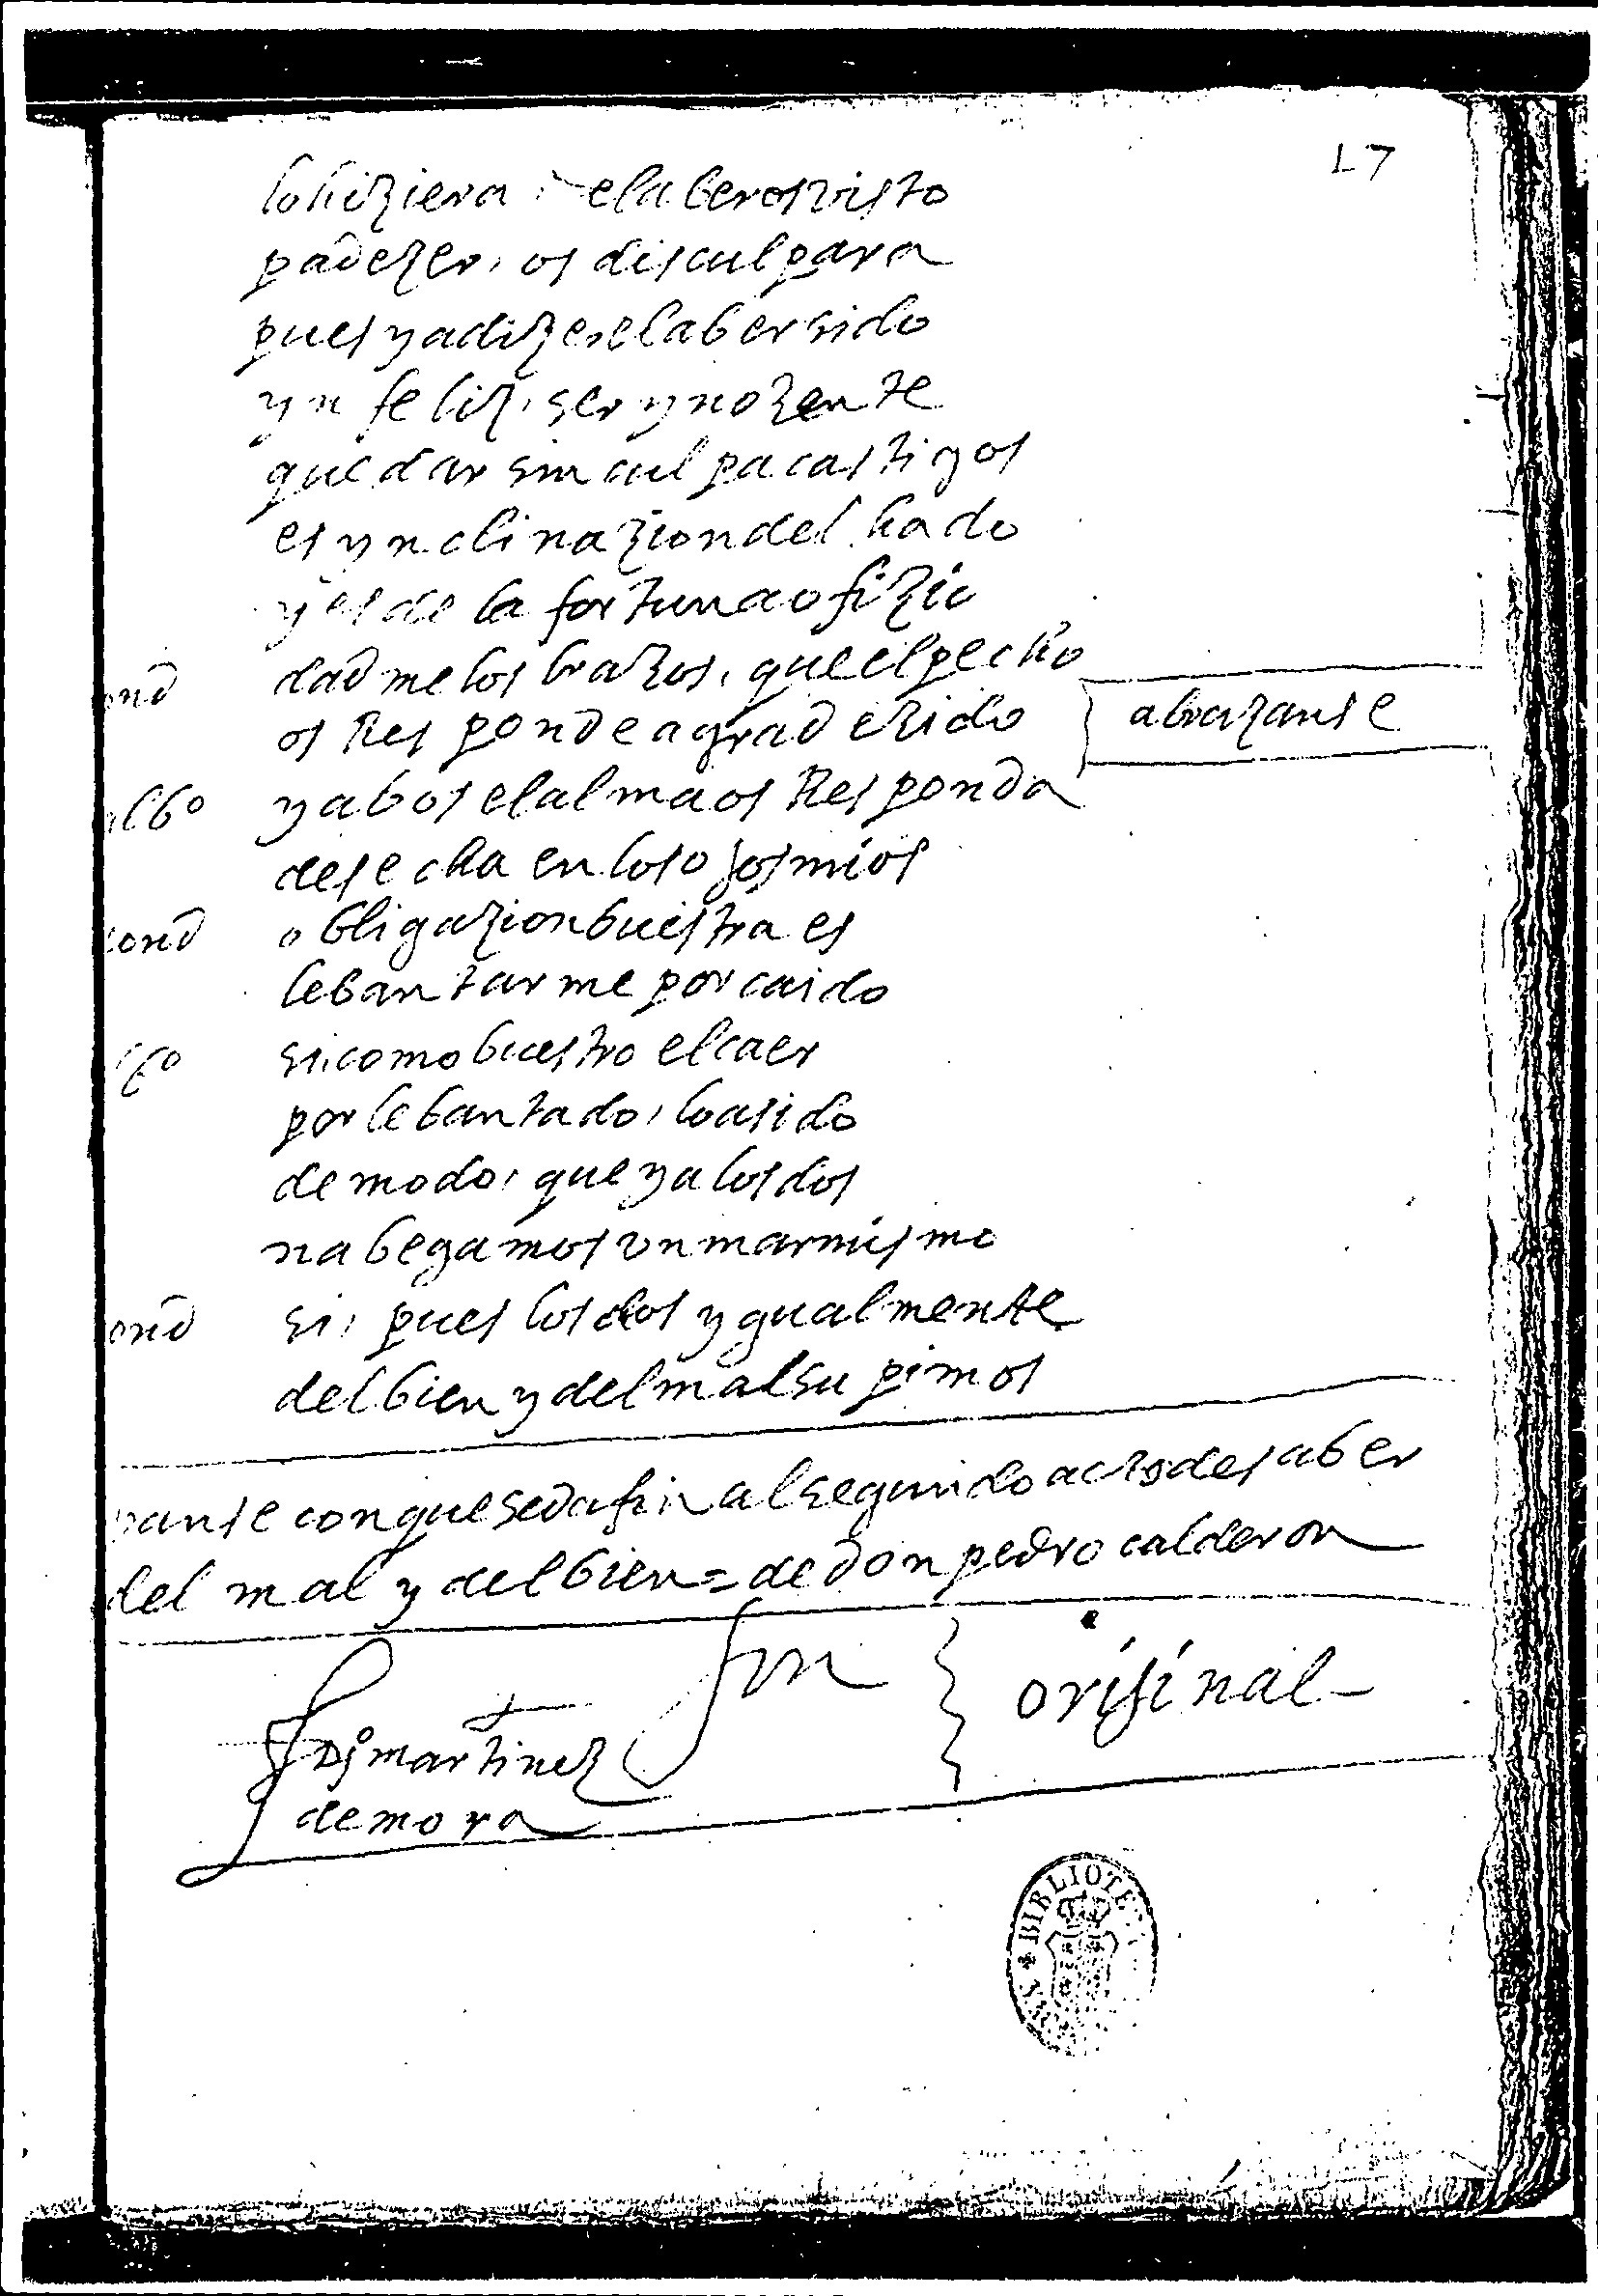 17
lo hiziera el aberos visto
padezer, os disculpara
pues ya dize, el aber sido
ynfeliz, ser ynozente
que dar sin culpa castigos
es ynclinazion del hado
y es de la fortuna ofizio
ond dadme los brazos, que el pecho
os Responde agradezido } abrazanse
albo y a bos el alma os Responda
desecha en los ojos mios
cond obligazion buestra es
lebantarme por caido
lbo si, como buestro el caer
por lebantado, lo a sido
de modo, que ya los dos
nabegamos vn mar mismo
ond si, pues los dos ygualmente
del bien y del mal supimos
banse con que se da fin al segundo acto de saber
del mal y del bien = de don pedro calderon
fin } orijinal
Dgo martinez
de mora
BIBLIOTE